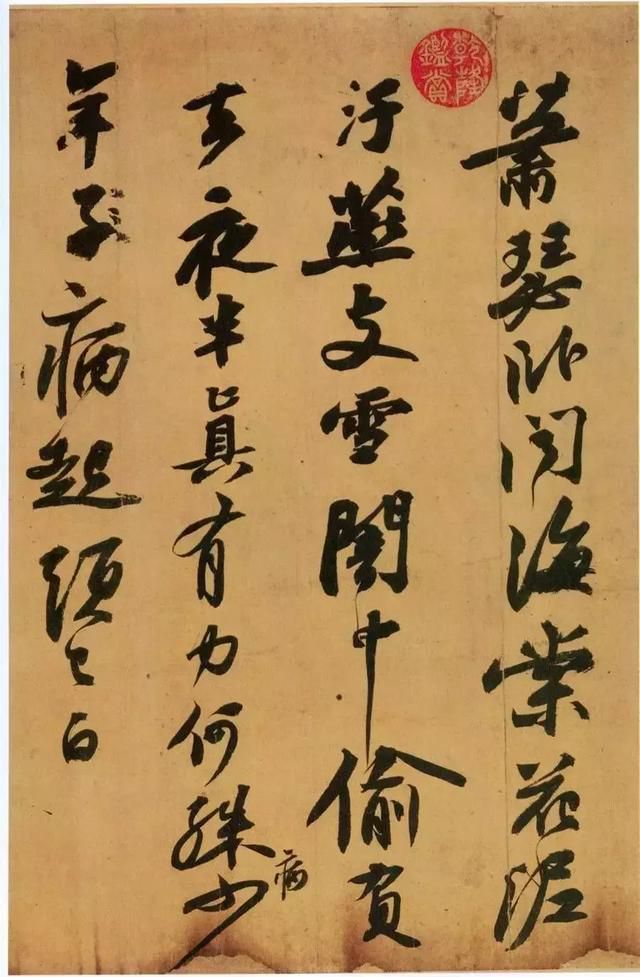 蕭瑟臥聞海棠花泥
汙燕支雪闇中偷負
去夜半真有力何殊少
病
年子病起頭已白
乾隆鑑賞